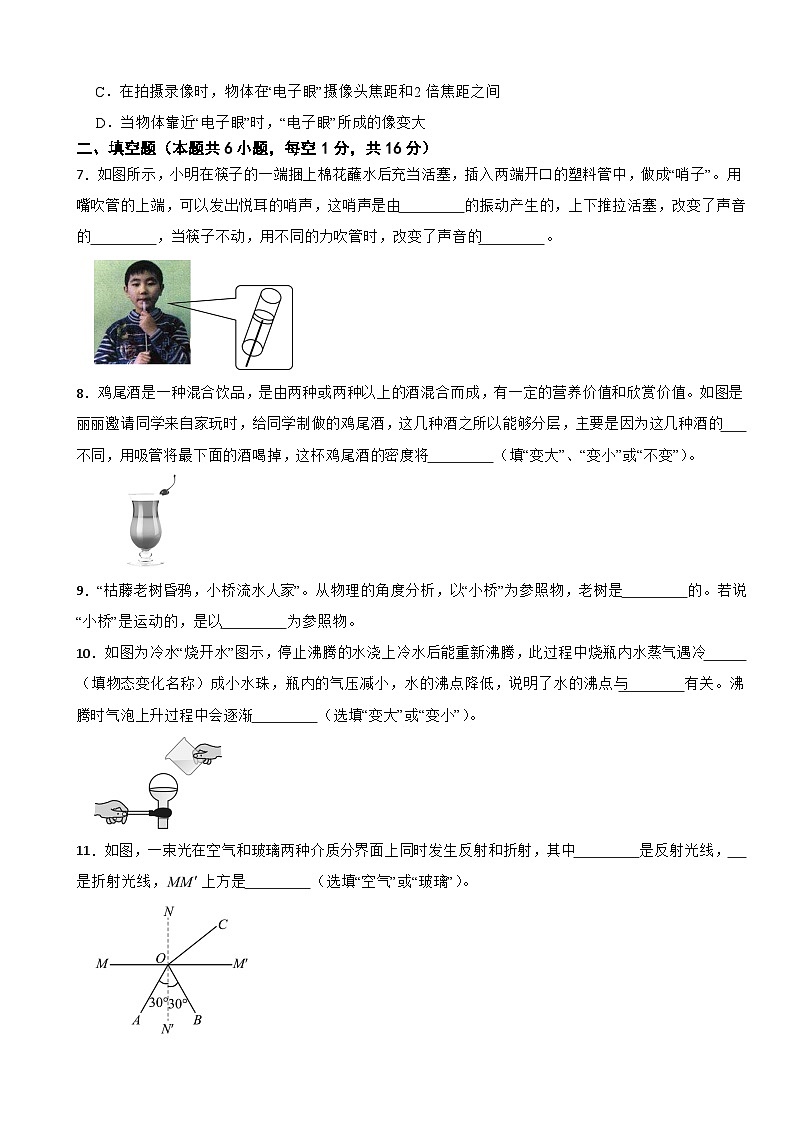 C．在拍摄录像时，物体在“电子眼”摄像头焦距和2 倍焦距之间
D．当物体靠近“电子眼”时，“电子眼”所成的像变大
二、填空题（本题共 6 小题，每空 1 分，共 16 分）
7．如图所示，小明在筷子的一端捆上棉花蘸水后充当活塞，插入两端开口的塑料管中，做成“哨子”。用
嘴吹管的上端，可以发出悦耳的哨声，这哨声是由_________的振动产生的，上下推拉活塞，改变了声音
的_________，当筷子不动，用不同的力吹管时，改变了声音的_________。
8．鸡尾酒是一种混合饮品，是由两种或两种以上的酒混合而成，有一定的营养价值和欣赏价值。如图是
丽丽邀请同学来自家玩时，给同学制做的鸡尾酒，这几种酒之所以能够分层，主要是因为这几种酒的____
不同，用吸管将最下面的酒喝掉，这杯鸡尾酒的密度将_________（填“变大”、“变小”或“不变”）。
9．“枯藤老树昏鸦，小桥流水人家”。从物理的角度分析，以“小桥”为参照物，老树是_________的。若说
“小桥”是运动的，是以_________为参照物。
10．如图为冷水“烧开水”图示，停止沸腾的水浇上冷水后能重新沸腾，此过程中烧瓶内水蒸气遇冷______
（填物态变化名称）成小水珠，瓶内的气压减小，水的沸点降低，说明了水的沸点与________有关。沸
腾时气泡上升过程中会逐渐_________（选填“变大”或“变小”）。
11．如图，一束光在空气和玻璃两种介质分界面上同时发生反射和折射，其中_________是反射光线，___
是折射光线，MM′ 上方是_________（选填“空气”或“玻璃”）。
N
C
M
O
M′
30°
30°
A
B
N′